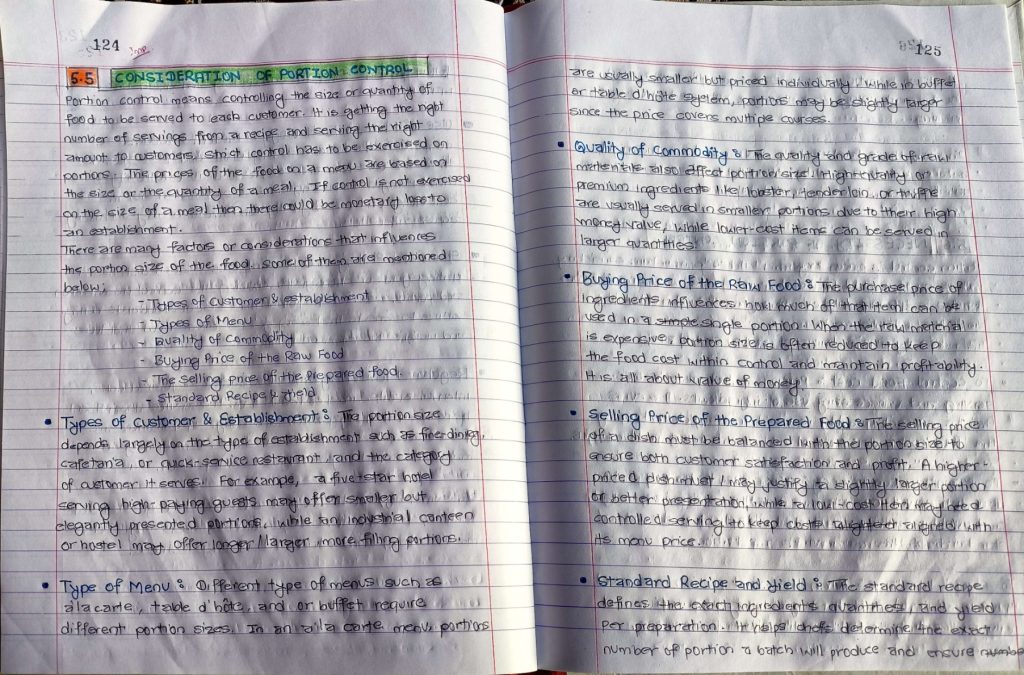 124
5.5 CONSIDERATION OF PORTION CONTROL
Portion control means controlling the size or quantity of
food to be served to each customer. It is getting the right
number of servings from a recipe and serving the right
amount to customers. Strict control has to be exercised on
portions. The prices of the food on a menu are based on
the size or the quantity of a meal. If control is not exercised
on the size of a meal then there could be monetary loss to
an establishment.
There are many factors or considerations that influences
the portion size of the food. Some of them are mentioned
below;
- Types of customer & establishment
- Types of Menu
- Quality of Commodity
- Buying Price of the Raw Food
- The Selling price of the Prepared food.
- Standard Recipe & Yield
• Types of customer & Establishment : The portion size
depends largely on the type of establishment such as fine-dining,
cafetaria, or quick-service restaurant, and the category
of customer it serves. For example, a five star hotel
serving high-paying guests may offer smaller but
elegantly presented portions, while an industrial canteen
or hostel may offer longer/larger, more filling portions.
• Type of Menu : Different type of menus such as
a'la carte, table d'hôte, and or buffet require
different portion sizes. In an a'la carte menu, portions
125
are usually smaller but priced individually, while in buffet
or table d'hôte system, portions may be slightly larger
since the price covers multiple courses.
• Quality of Commodity : The quality and grade of raw
materials also affect portion size. High-quality or
premium ingredients like lobster, tenderloin, or truffle
are usually served in smaller portions due to their high
money value, while lower-cost items can be served in
larger quantities.
• Buying Price of the Raw Food : The purchase price of
ingredients influences how much of that item can be
used in a simple single portion. When the raw material
is expensive, portion size is often reduced to keep
the food cost within control and maintain profitability.
It is all about value of money.
• Selling Price of the Prepared Food : The selling price
of a dish must be balanced with the portion size to
ensure both customer satisfaction and profit. A higher-
priced dish must / may justify a slightly larger portion
or better presentation, while a low-cost item may need
controlled serving to keep costs aligned with
its menu price.
• Standard Recipe and Yield : The standard recipe
defines the exact ingredients quantities, and yield
per preparation. It helps chefs determine the exact
number of portion a batch will produce and ensure